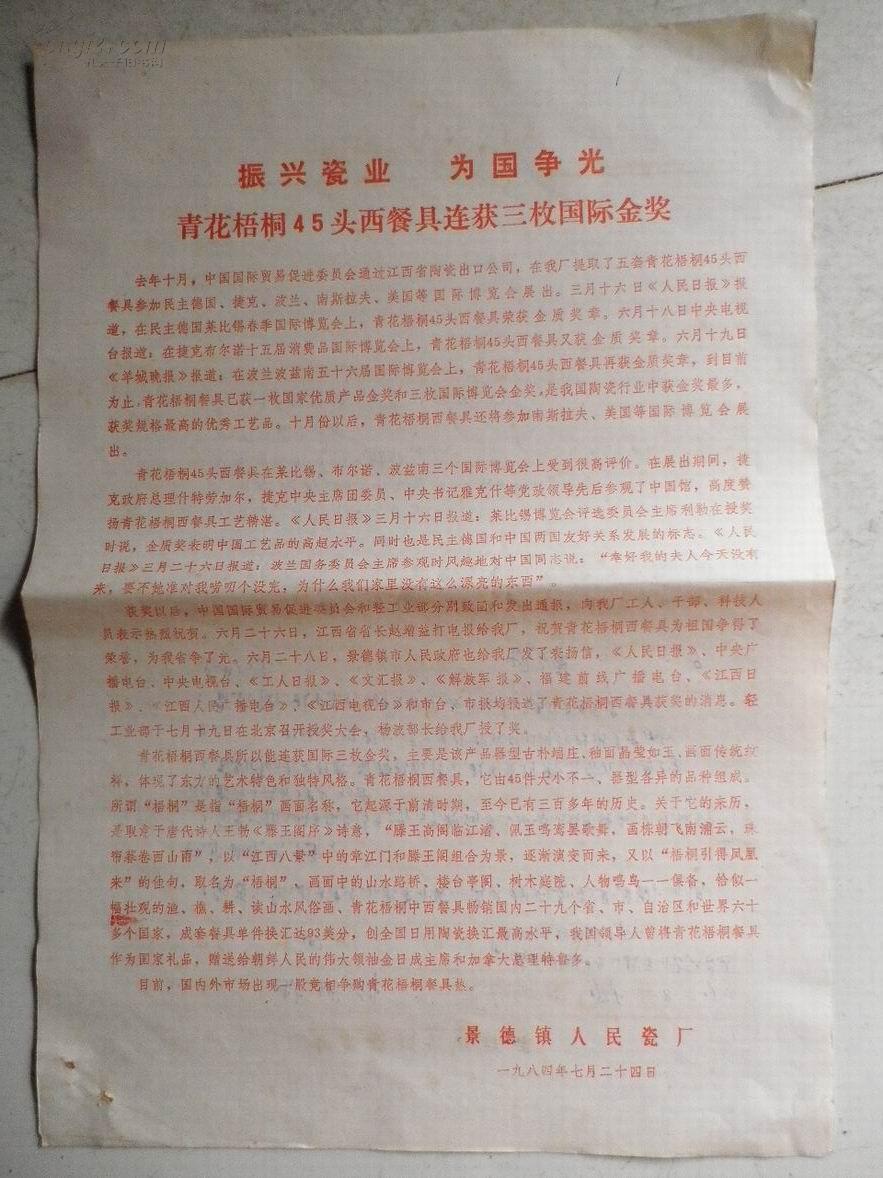 振兴瓷业 为国争光
青花梧桐45头西餐具连获三枚国际金奖
去年十月，中国国际贸易促进委员会通过江西省陶瓷出口公司，在我厂提取了五套青花梧桐45头西
餐具参加民主德国、捷克、波兰、南斯拉夫、美国等国际博览会展出。三月十六日《人民日报》报
道，在民主德国莱比锡春季国际博览会上，青花梧桐45头西餐具荣获金质奖章。六月十八日中央电视
台报道：在捷克布尔诺十五届消费品国际博览会上，青花梧桐45头西餐具又获金质奖章。六月十九日
《羊城晚报》报道：在波兰波兹南五十六届国际博览会上，青花梧桐45头西餐具再获金质奖章，到目前
为止，青花梧桐餐具已获一枚国家优质产品金奖和三枚国际博览会金奖，是我国陶瓷行业中获金奖最多，
获奖规格最高的优秀工艺品。十月份以后，青花梧桐西餐具还将参加南斯拉夫、美国等国际博览会展
出。
青花梧桐45头西餐具在莱比锡、布尔诺、波兹南三个国际博览会上受到很高评价。在展出期间，捷
克政府总理什特劳加尔，捷克中央主席团委员、中央书记雅克什等党政领导先后参观了中国馆，高度赞
扬青花梧桐西餐具工艺精湛。《人民日报》三月十六日报道：莱比锡博览会评选委员会主席利勒在授奖
时说，金质奖表明中国工艺品的高超水平。同时也是民主德国和中国两国友好关系发展的标志。《人民
日报》三月二十六日报道：波兰国务委员会主席参观时风趣地对中国同志说：“幸好我的夫人今天没有
来，要不她准对我唠叨个没完，为什么我们家里没有这么漂亮的东西”。
获奖以后，中国国际贸易促进委员会和轻工业部分别致函和发出通报，向我厂工人、干部、科技人
员表示热烈祝贺。六月二十六日，江西省省长赵增益打电报给我厂，祝贺青花梧桐西餐具为祖国争得了
荣誉，为我省争了光。六月二十八日，景德镇市人民政府也给我厂发了表扬信，《人民日报》、中央广
播电台、中央电视台、《工人日报》、《文汇报》、《解放军报》、福建前线广播电台、《江西日
报》、《江西人民广播电台》、《江西电视台》和市台、市报均报道了青花梧桐西餐具获奖的消息。轻
工业部于七月十九日在北京召开授奖大会，杨波部长给我厂授了奖。
青花梧桐西餐具所以能连获国际三枚金奖，主要是该产品器型古朴端庄、釉面晶莹如玉、画面传统纹
样，体现了东方的艺术特色和独特风格。青花梧桐西餐具，它由45件大小不一、器型各异的品种组成。
所谓“梧桐”是指“梧桐”画面名称，它起源于前清时期，至今已有三百多年的历史。关于它的来历，
是取意于唐代诗人王勃《滕王阁序》诗意，“滕王高阁临江渚、佩玉鸣鸾罢歌舞，画栋朝飞南浦云，珠
帘暮卷西山雨”，以“江西八景”中的章江门和滕王阁组合为景，逐渐演变而来，又以“梧桐引得凤凰
来”的佳句，取名为“梧桐”，画面中的山水路桥、楼台亭阁、树木庭院、人物鸣鸟一一俱备，恰似一
幅壮观的渔、樵、耕、读山水风俗画、青花梧桐中西餐具畅销国内二十九个省、市、自治区和世界六十
多个国家，成套餐具单件换汇达93美分，创全国日用陶瓷换汇最高水平，我国领导人曾将青花梧桐餐具
作为国家礼品，赠送给朝鲜人民的伟大领袖金日成主席和加拿大总理特鲁多。
目前，国内外市场出现一股竞相争购青花梧桐餐具热。
景德镇人民瓷厂
一九八四年七月二十四日